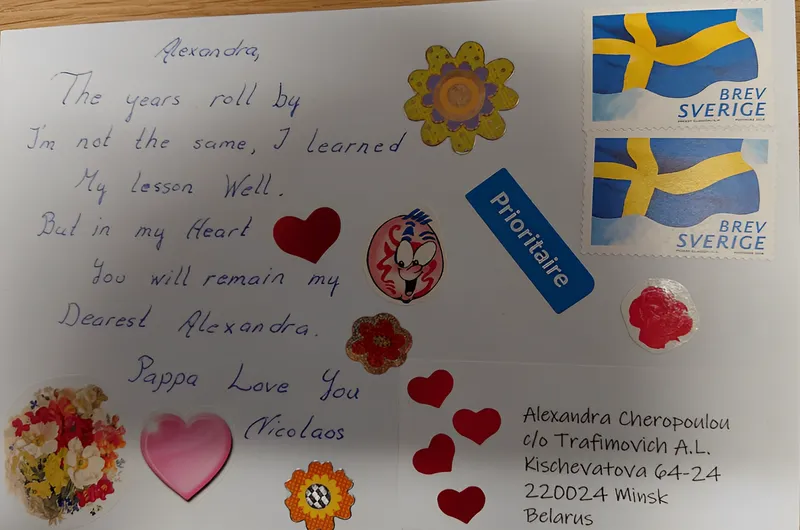 Alexandra,
The years roll by
I'm not the same, I learned
My lesson Well.
But in my Heart
You will remain my
Dearest Alexandra.
Pappa Love You
Nicolaos
BREV
SVERIGE
BREV
SVERIGE
Prioritaire
Alexandra Cheropoulou
c/o Trafimovich A.L.
Kischevatova 64-24
220024 Minsk
Belarus